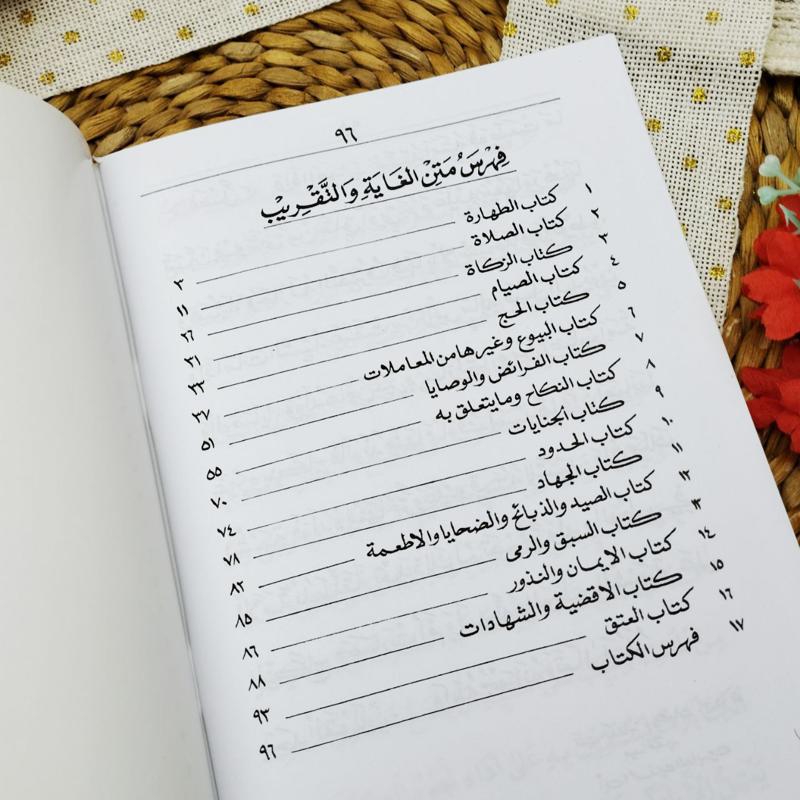 ٩٦
فِهْرَسُ مَتْنِ الْغَايَةِ وَالتَّقْرِيْبِ
١ كتاب الطهارة ٣
٢ كتاب الصلاة ١١
٣ كتاب الزكاة ٢٦
٤ كتاب الصيام ٣١
٥ كتاب الحج ٣٣
٦ كتاب البيوع وغيرها من المعاملات ٣٧
٧ كتاب الفرائض والوصايا ٥١
٨ كتاب النكاح ومايتعلق به ٥٥
٩ كتاب الجنايات ٧٠
١٠ كتاب الحدود ٧٤
١١ كتاب الجهاد ٧٨
١٢ كتاب الصيد والذبائح والضحايا والاطعمة ٨٢
١٣ كتاب السبق والرمى ٨٥
١٤ كتاب الايمان والنذور ٨٦
١٥ كتاب الاقضية والشهادات ٨٨
١٦ كتاب العتق ٩٣
١٧ فهرس الكتاب ٩٦